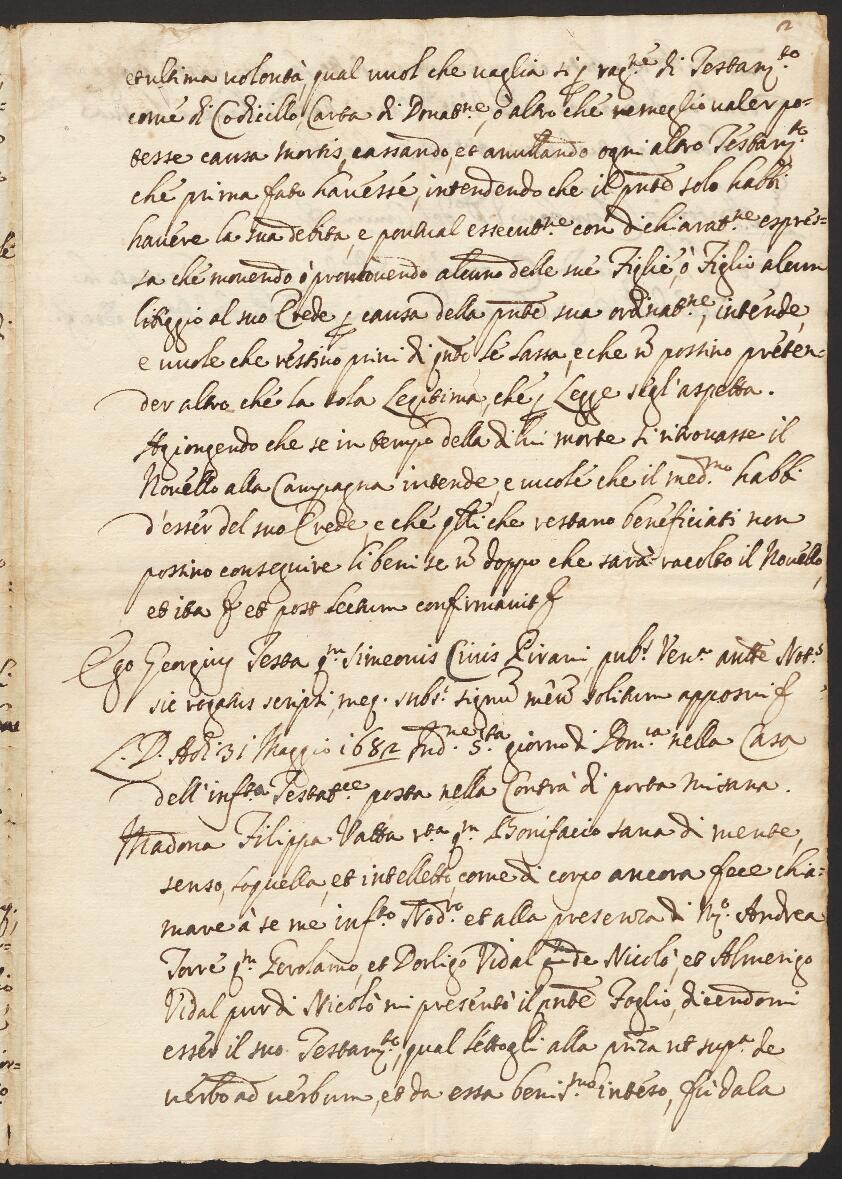 2
et ultima volontà, qual vuol che vaglia si p rag.ne di Testam.to
come di Codicillo, Carta di Donat.ne, ò altro che re meglio valer po-
tesse causa mortis, cassando, et anullando ogni altro Testam.to
che prima fato havesse, intendendo che il pnte solo habbi
havere la sua debita, e pontual essecut.ne con dichiarat.ne espres-
sa che movendo ò promovendo alcuno delle sue Figlie, ò Figlio alcun
litiggio al suo Erede p causa della pnte sua ordinat.ne, intende,
e vuole che restino privi di qnto se lassa, e che nō possino preten-
der altro che la sola Legitima, che p Legge segl'aspetta.
Agiongendo che se in tempo della di lui morte si ritrovasse il
Novello alla Campagna intende, e vuole che il med.mo habbi
d'esser del suo Erede, e che q̃lli che restano beneficiati non
possino conseguire li beni se nō doppo che sarà racolto il Novello,
et ita p et post lectum confirmavit p
Ego Georgius Testa q.m Simeonis Civis Pirani, pub.s Ven.a autte Not.s
sic rogatus scripsi, meq. subs.si signũ meũ solitum apposui p
L. D. Adi 31 Maggio 1682 Ind.ne 5.ta giorno di Dom.ca nella Casa
dell'infr.ta Testat.ce posta nella Contrà di porta Misana.
Madona Filippa Vatta r.ta q.m Bonifacio sana di mente,
senso, loquella, et intelletto, come di corpo ancora fece chia-
mare à se me infr.to Nod.ro et alla presenza di M.o Andrea
Torre q.m Gerolamo, et Dorligo Vidal de Nicolò, et Almerigo
Vidal pur di Nicolò mi presentò il pnte Foglio, dicendomi
esser il suo Testam.to, qual lettogli alla pñza ut sup.a de
verbo ad verbum, et da essa beniss.mo inteso, fù dala